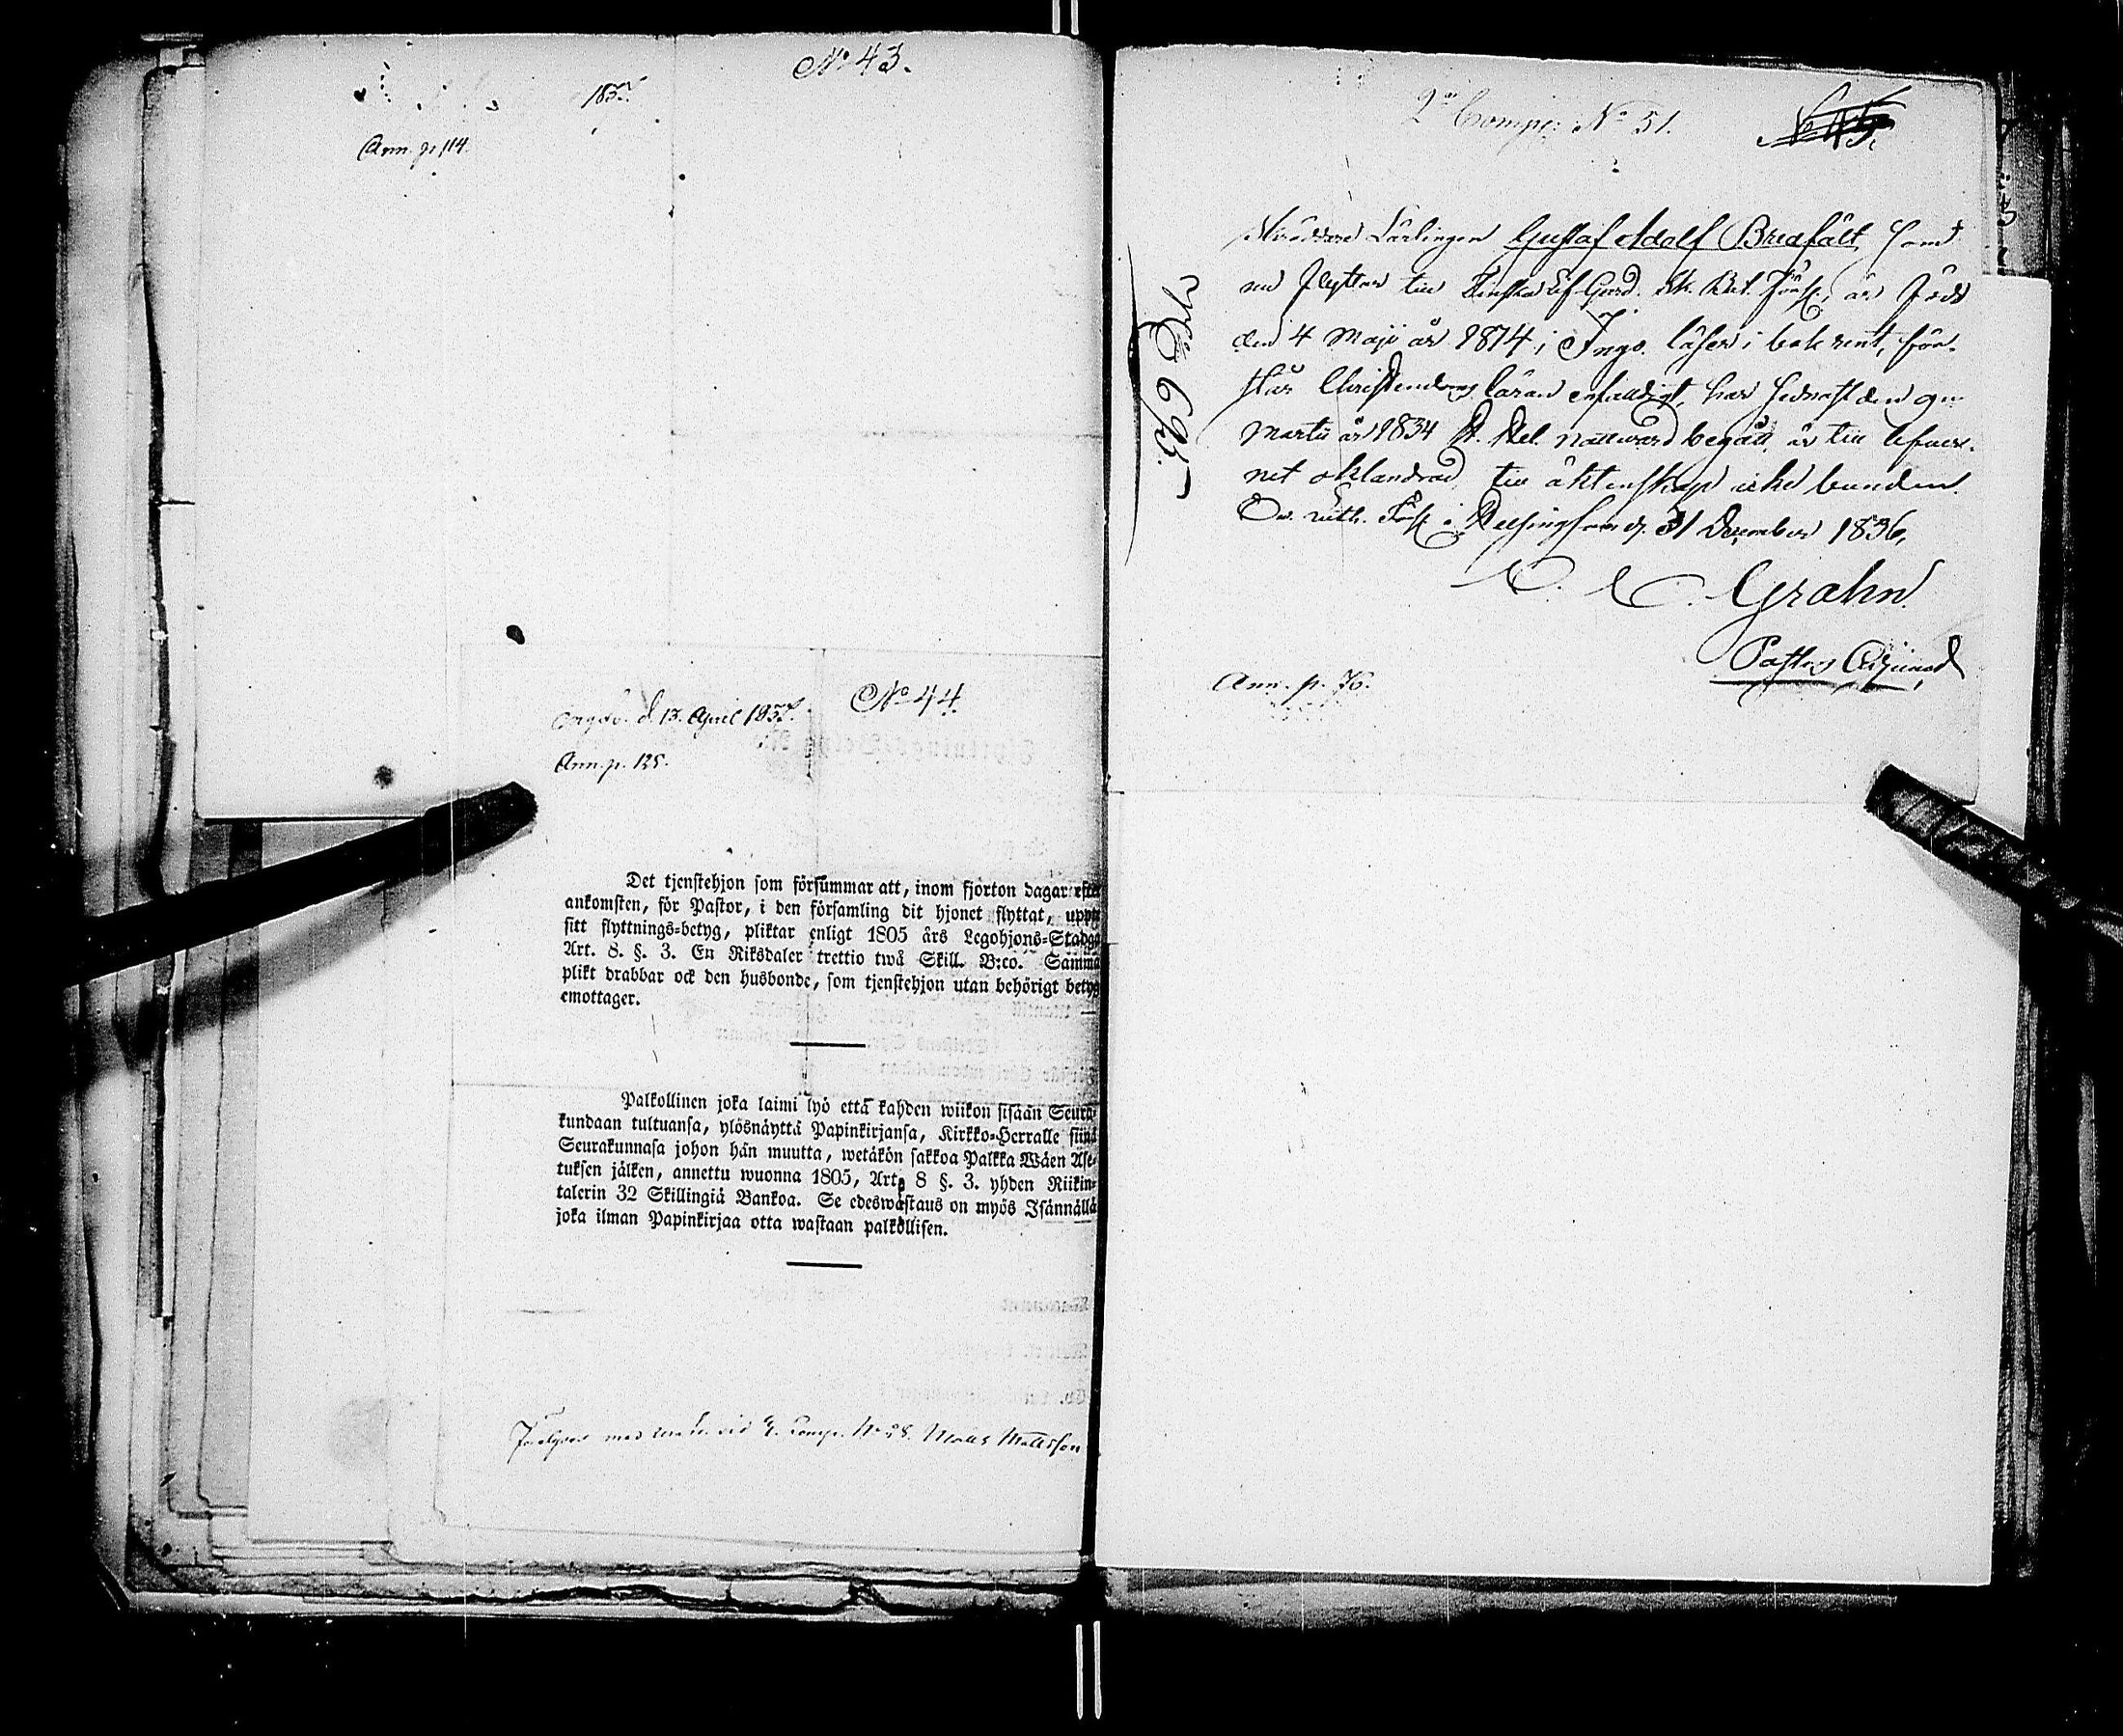 No 43.
1837.
Ann. p. 114.
No 44.
d. 13. April 1837.
Ann. p. 125.
Det tjenstehjon som försummar att, inom fjorton dagar efter
ankomsten, för Pastor, i den församling dit hjonet flyttat, uppte
sitt flyttnings-betyg, pliktar enligt 1805 års Legohjons-Stadga
Art. 8. §. 3. En Riksdaler trettio twå Skill. B:co. Samma
plikt drabbar ock den husbonde, som tjenstehjon utan behörigt betyg
emottager.
Palkollinen joka laimi lyö että kahden wiikon sisään Seura-
kundaan tultuansa, ylösnäyttä Papinkirjansa, Kirkko-Herralle siinä
Seurakunnasa johon hän muutta, wetäkön sakkoa Palkka Wäen Ase-
tuksen jälken, annettu wuonna 1805, Art. 8 §. 3. yhden Riikin-
talerin 32 Skillingiä Bankoa. Se edeswastaus on myös Isännällä
joka ilman Papinkirjaa otta wastaan palkollisen.
med vid Comp. No 28. Matts Mattsson
2a Comp: No 51.
No 45.
No 695.
Skräddare Lärlingen Gustaf Adolf Bredfält, som
nu flyttar till Finska Lif-Gard. Sk. Bat. Förs., är född
den 4 Maji år 1814 i Ingo. läser i bok rent, för-
står Christendoms läran enfaldigt, har sednast den 9
Martii år 1834 H. Hel. nattward begått, är till lefwer-
net oklandrad, till äktenskap icke bunden.
Ev. Luth. Förs. i Helsingfors d. 31 December 1836,
Grahn.
Pastors Adjunct
Ann. p. 76.